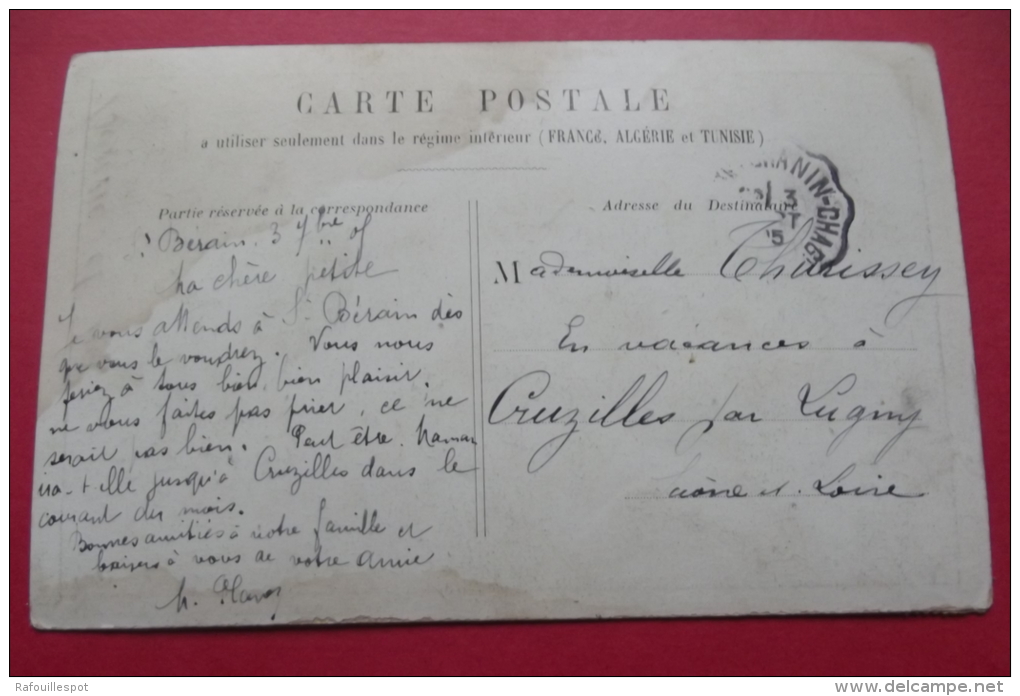 CARTE POSTALE
a utiliser seulement dans le régime intérieur (FRANCE, ALGÉRIE et TUNISIE)
Partie réservée à la correspondance
St Bérain. 3 7bre
Ma chère petite
Je vous attends à St Bérain dès
que vous le voudrez. Vous nous
feriez à tous bien, bien plaisir.
ne vous faites pas prier, ce ne
serait pas bien. Peut être Maman
ira-t-elle jusqu'à Cruzilles dans le
courant du mois.
Bonnes amitiés à votre famille et
baisers à vous de votre amie
M.
Adresse du Destinataire
Mademoiselle Charissey
En vacances à
Cruzilles par Lugny
Saône et Loire
CHANIN-CHAG
3
5
Rafouillespot
delcampe.net